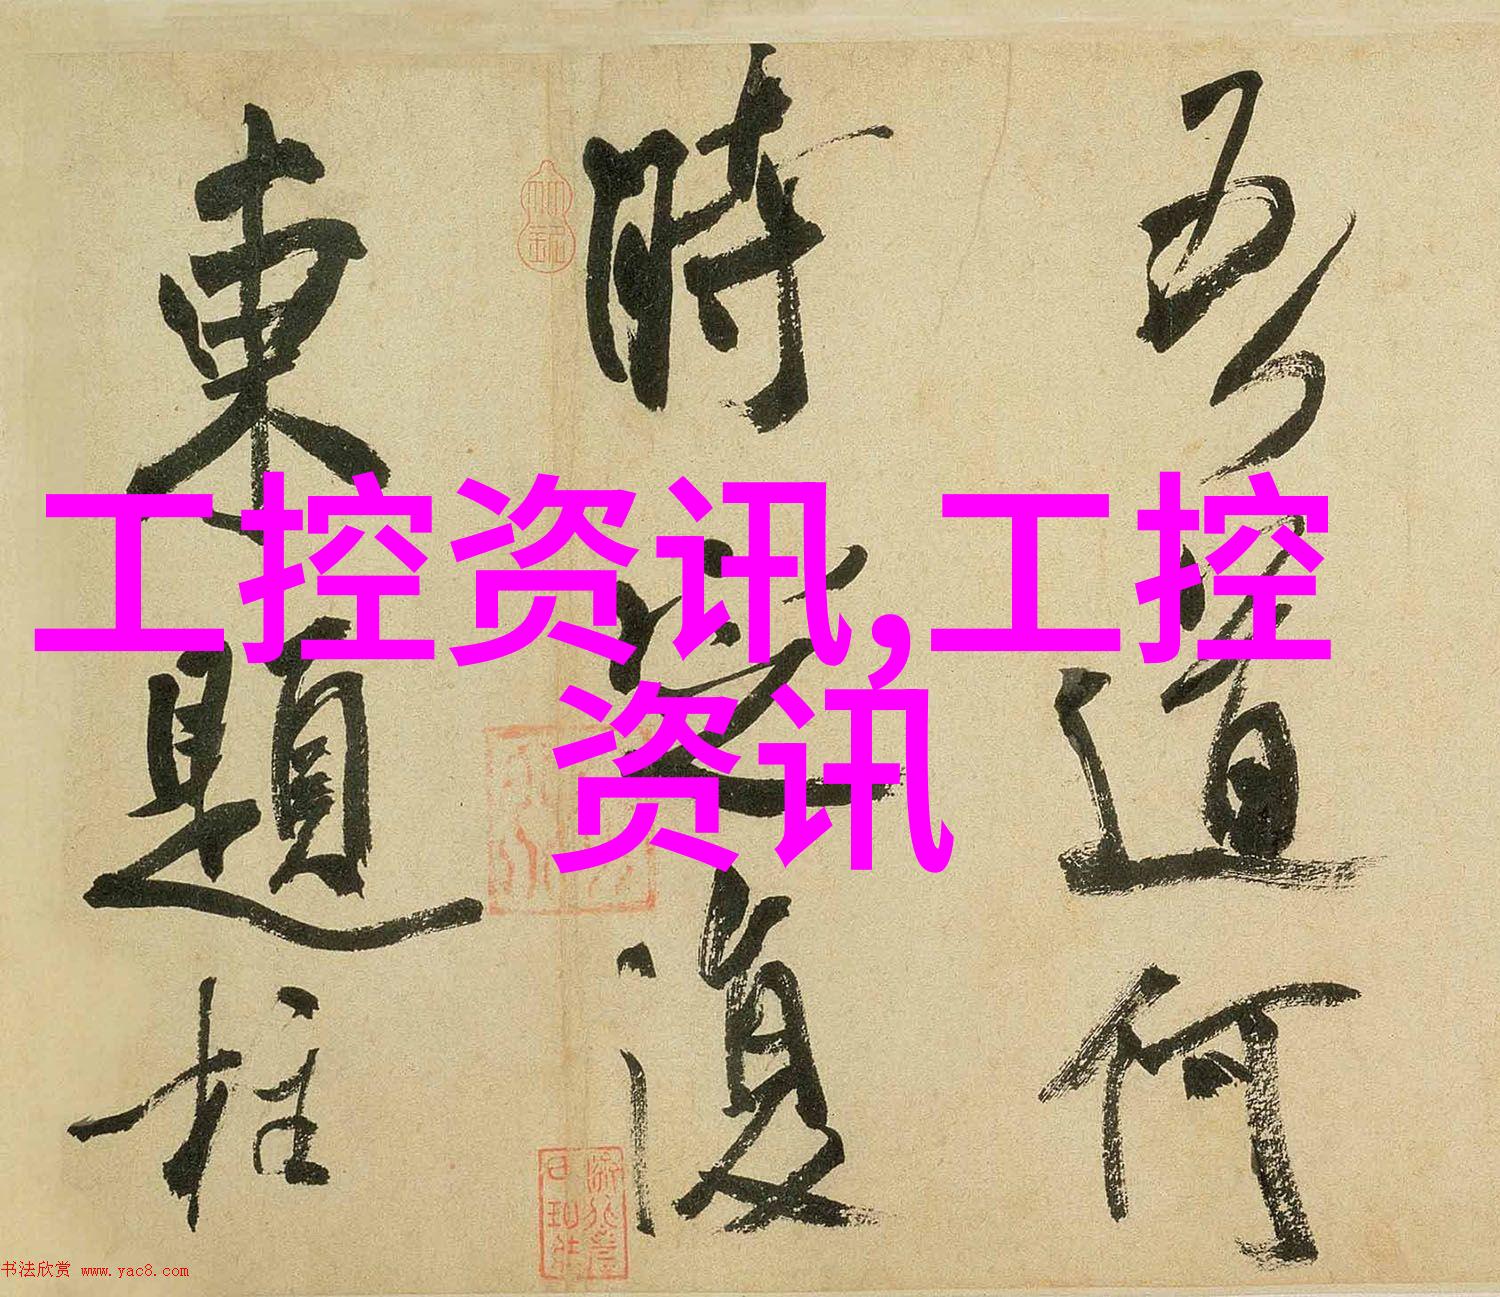 吾道何
時定復
東題柱
工控资讯,工控
资讯
书法欣赏 www.yac8.com